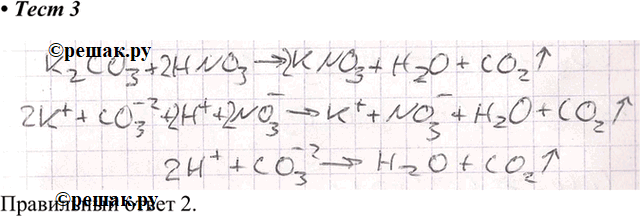 • Тест 3
©решак.ру
K₂CO₃+2HNO₃→2KNO₃+H₂O+CO₂↑
2K⁺+CO₃⁻²+2H⁺+2NO₃⁻→K⁺+NO₃⁻+H₂O+CO₂↑
2H⁺+CO₃⁻²→H₂O+CO₂↑
©решак.ру
Правильный ответ 2.